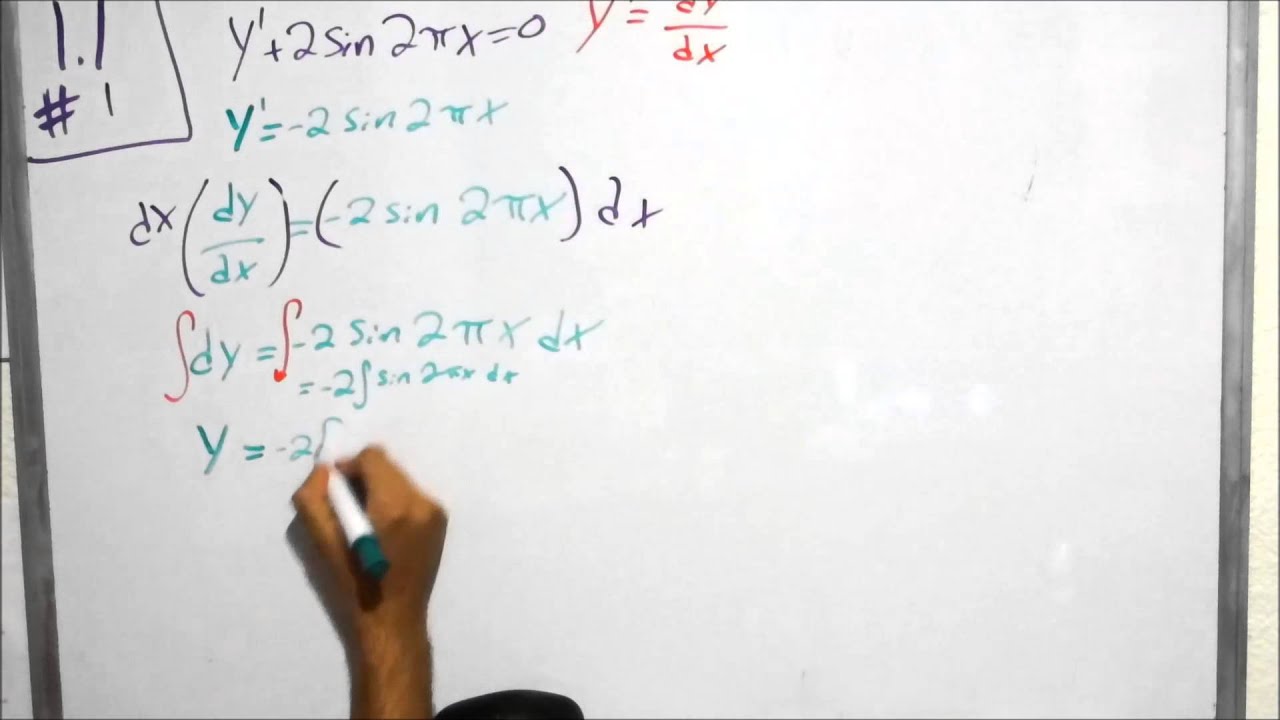 1.1
# 1
y'+2sin2πx=0
y' = dy/dx
y'=-2sin2πx
dx(dy/dx)=(-2sin 2πx)dx
∫dy=∫-2sin2πx dx
=-2∫sin2πx dx
y=-2∫